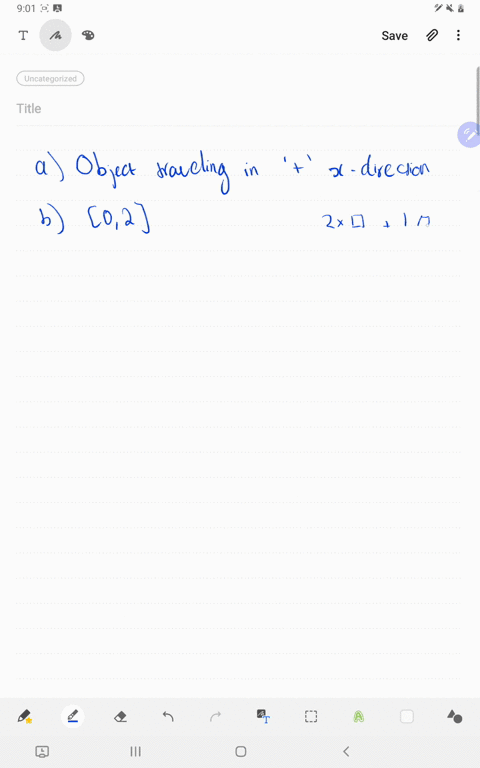 9:01
T Save
Uncategorized
Title
a) Object traveling in '+' x-direction
b) [0,2] 2 × □ + 1 □